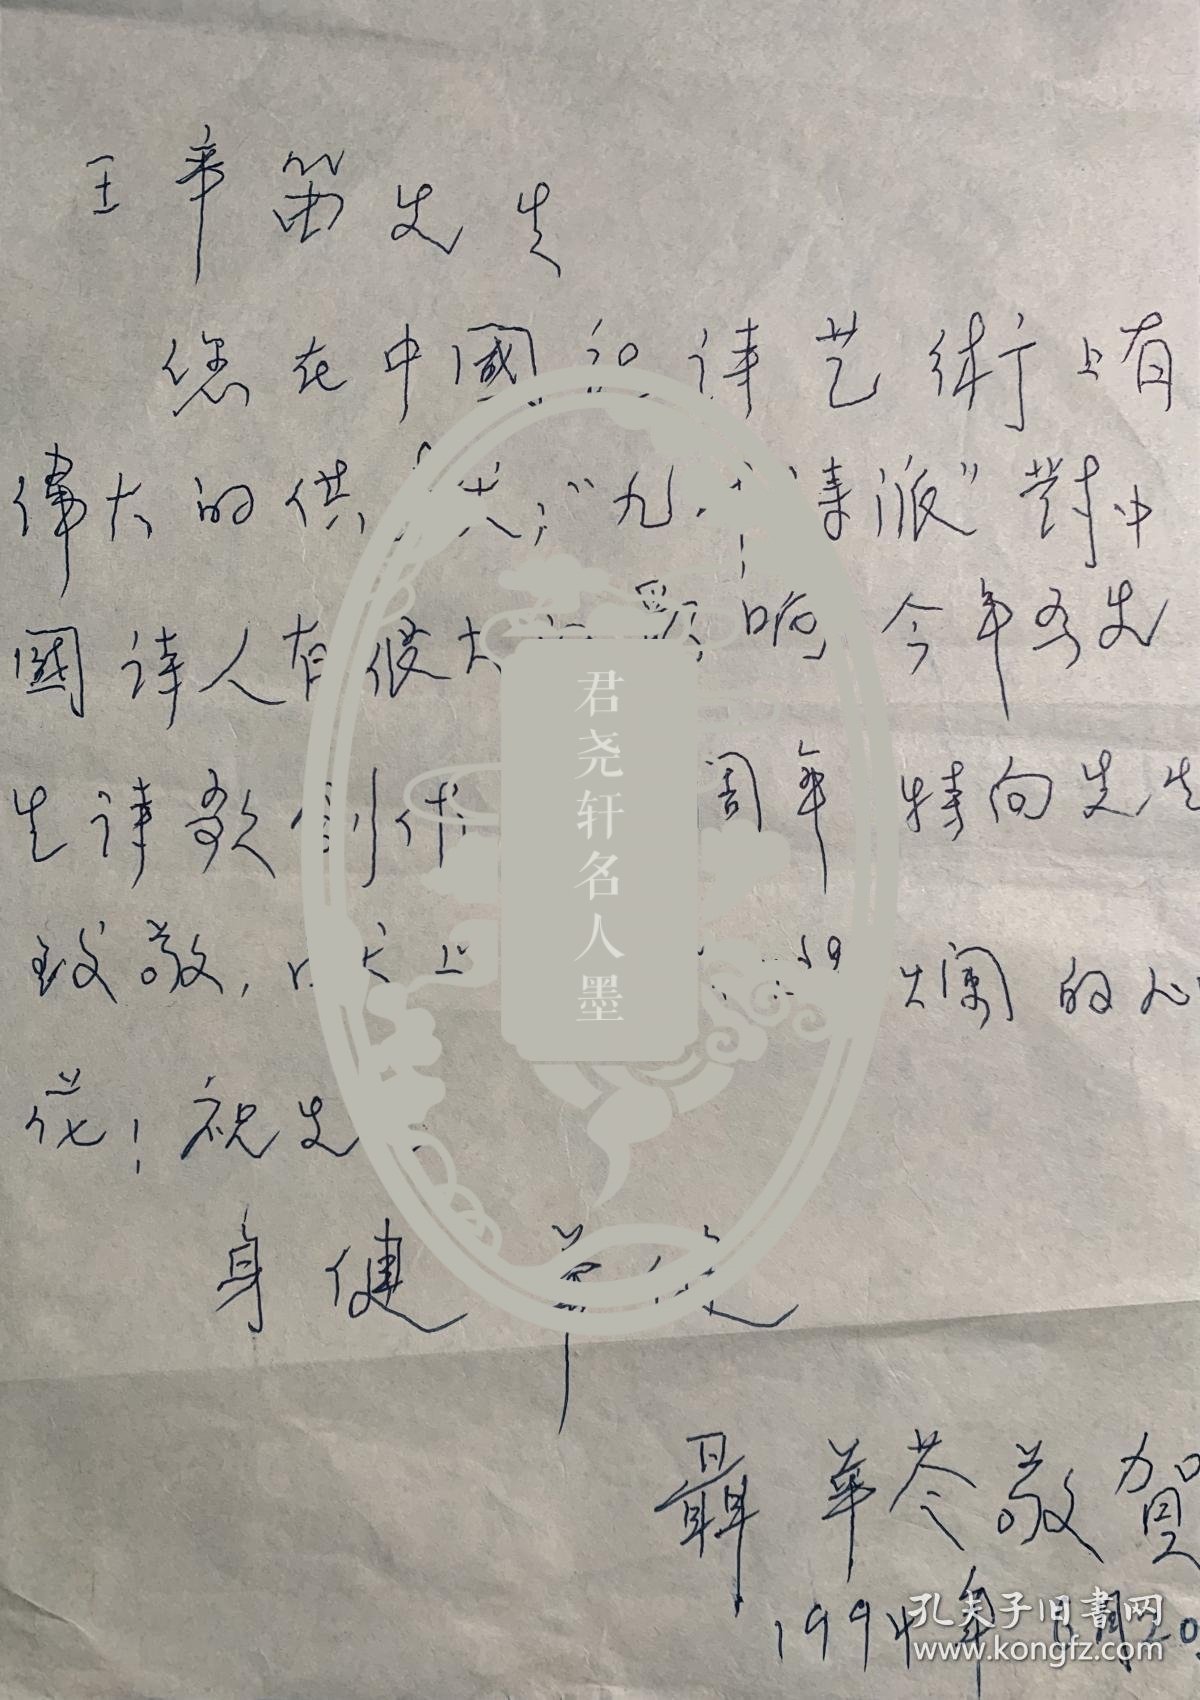 王辛笛先生
您在中國的诗艺術上有
偉大的供
“九 诗派”對中
國诗人有很大 影响 今年為先
生诗歌創作 周年 特向先生
致敬, 献上 燦爛的心
花!祝先
身健 筆健
聶華苓敬賀
1994年 月20
君尧轩名人墨
孔夫子旧書网
www.kongfz.com